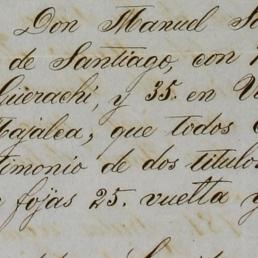 Don Manuel
de Santiago, con
Güerachi, y 35. en
Tajalea, que todos
timonio de dos titulos
fojas 25. vuelta y